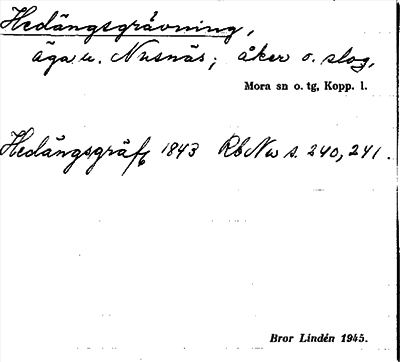 Hedängsgrävning,
äga u. Nusnäs; åker o. slog,
Mora sn o. tg, Kopp. l.
Hedängsgräfg 1843 RbNw s. 240, 241.
Bror Lindén 1945.